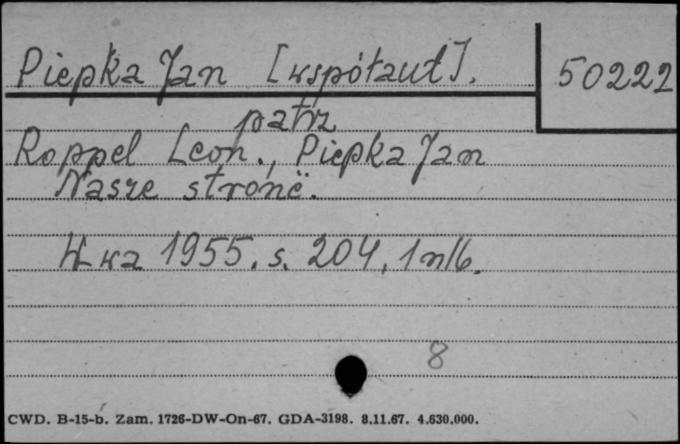 Piepka Jan [współaut].
50222
patrz
Roppel Leon., Piepka Jan
Nasze stronë.
W-wa 1955. s. 204, 1 nlb.
8
CWD. B-15-b. Zam. 1726-DW-On-67. GDA-3198. 8.11.67. 4.630.000.